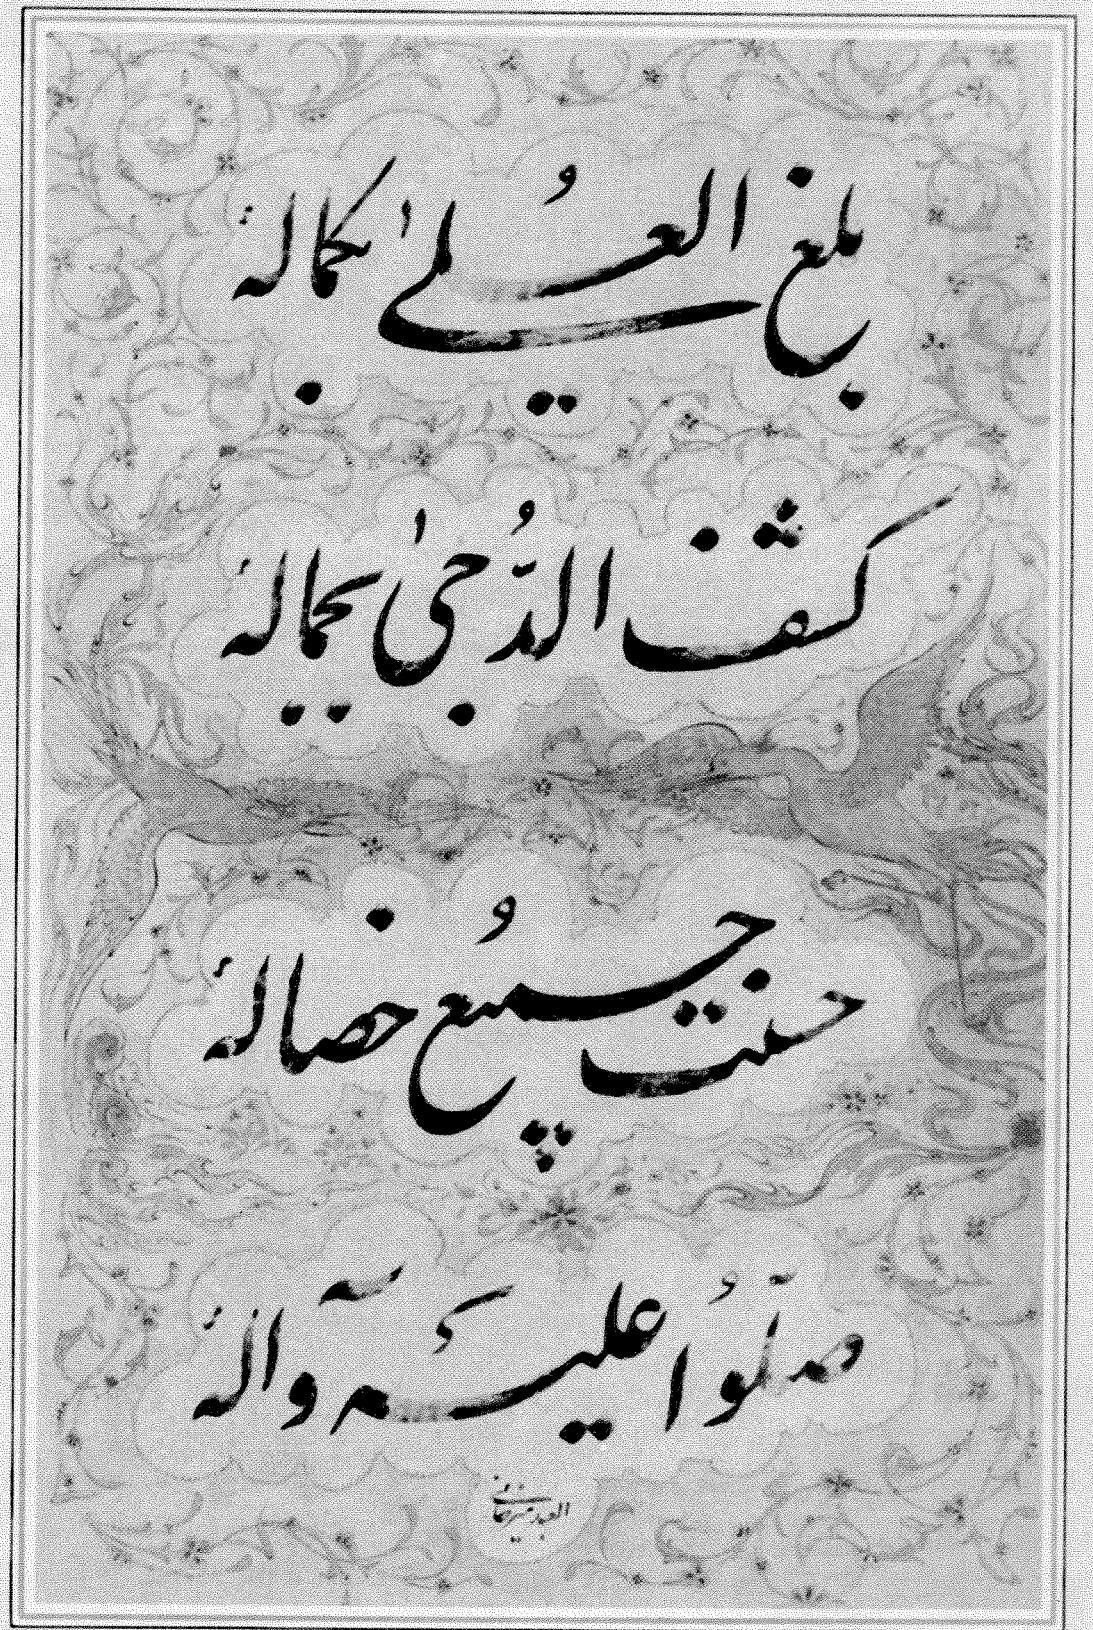 بلغ العُلیٰ بکمالهٖ
کشف الدُّجیٰ بجمالهٖ
حسنت جمیعُ خصالهٖ
صلّوُا علیه وآلهٖ
العبد